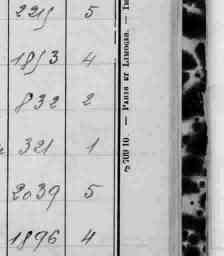 221 5
1853 4
832 2
321 1
2039 5
1896 4
5 709 10 — PARIS ET LIMOGES. —